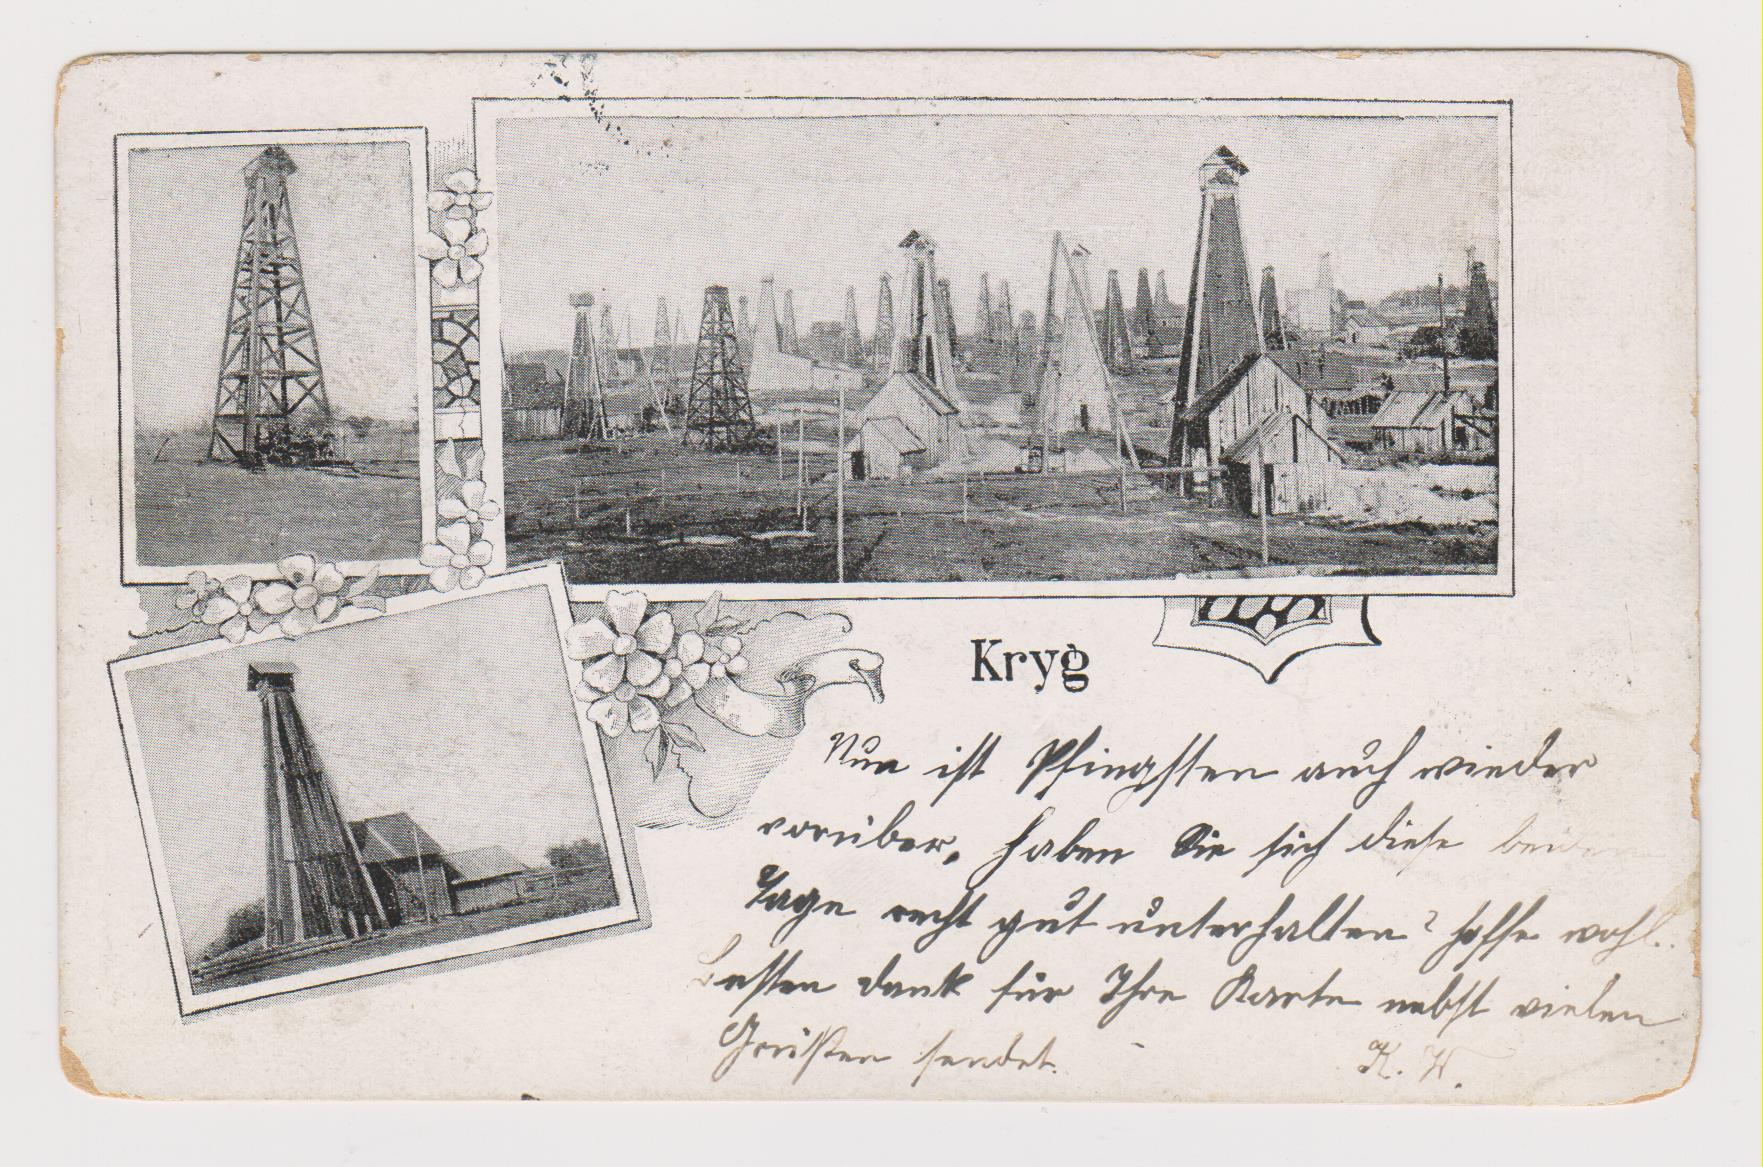 Kryg
Nun ist Pfingsten auch wieder
vorüber, haben Sie sich diese beiden
Tage recht gut unterhalten? hoffe wohl.
Besten dank für Ihre Karte nebst vielen
Grüßen sendet.
K. W.